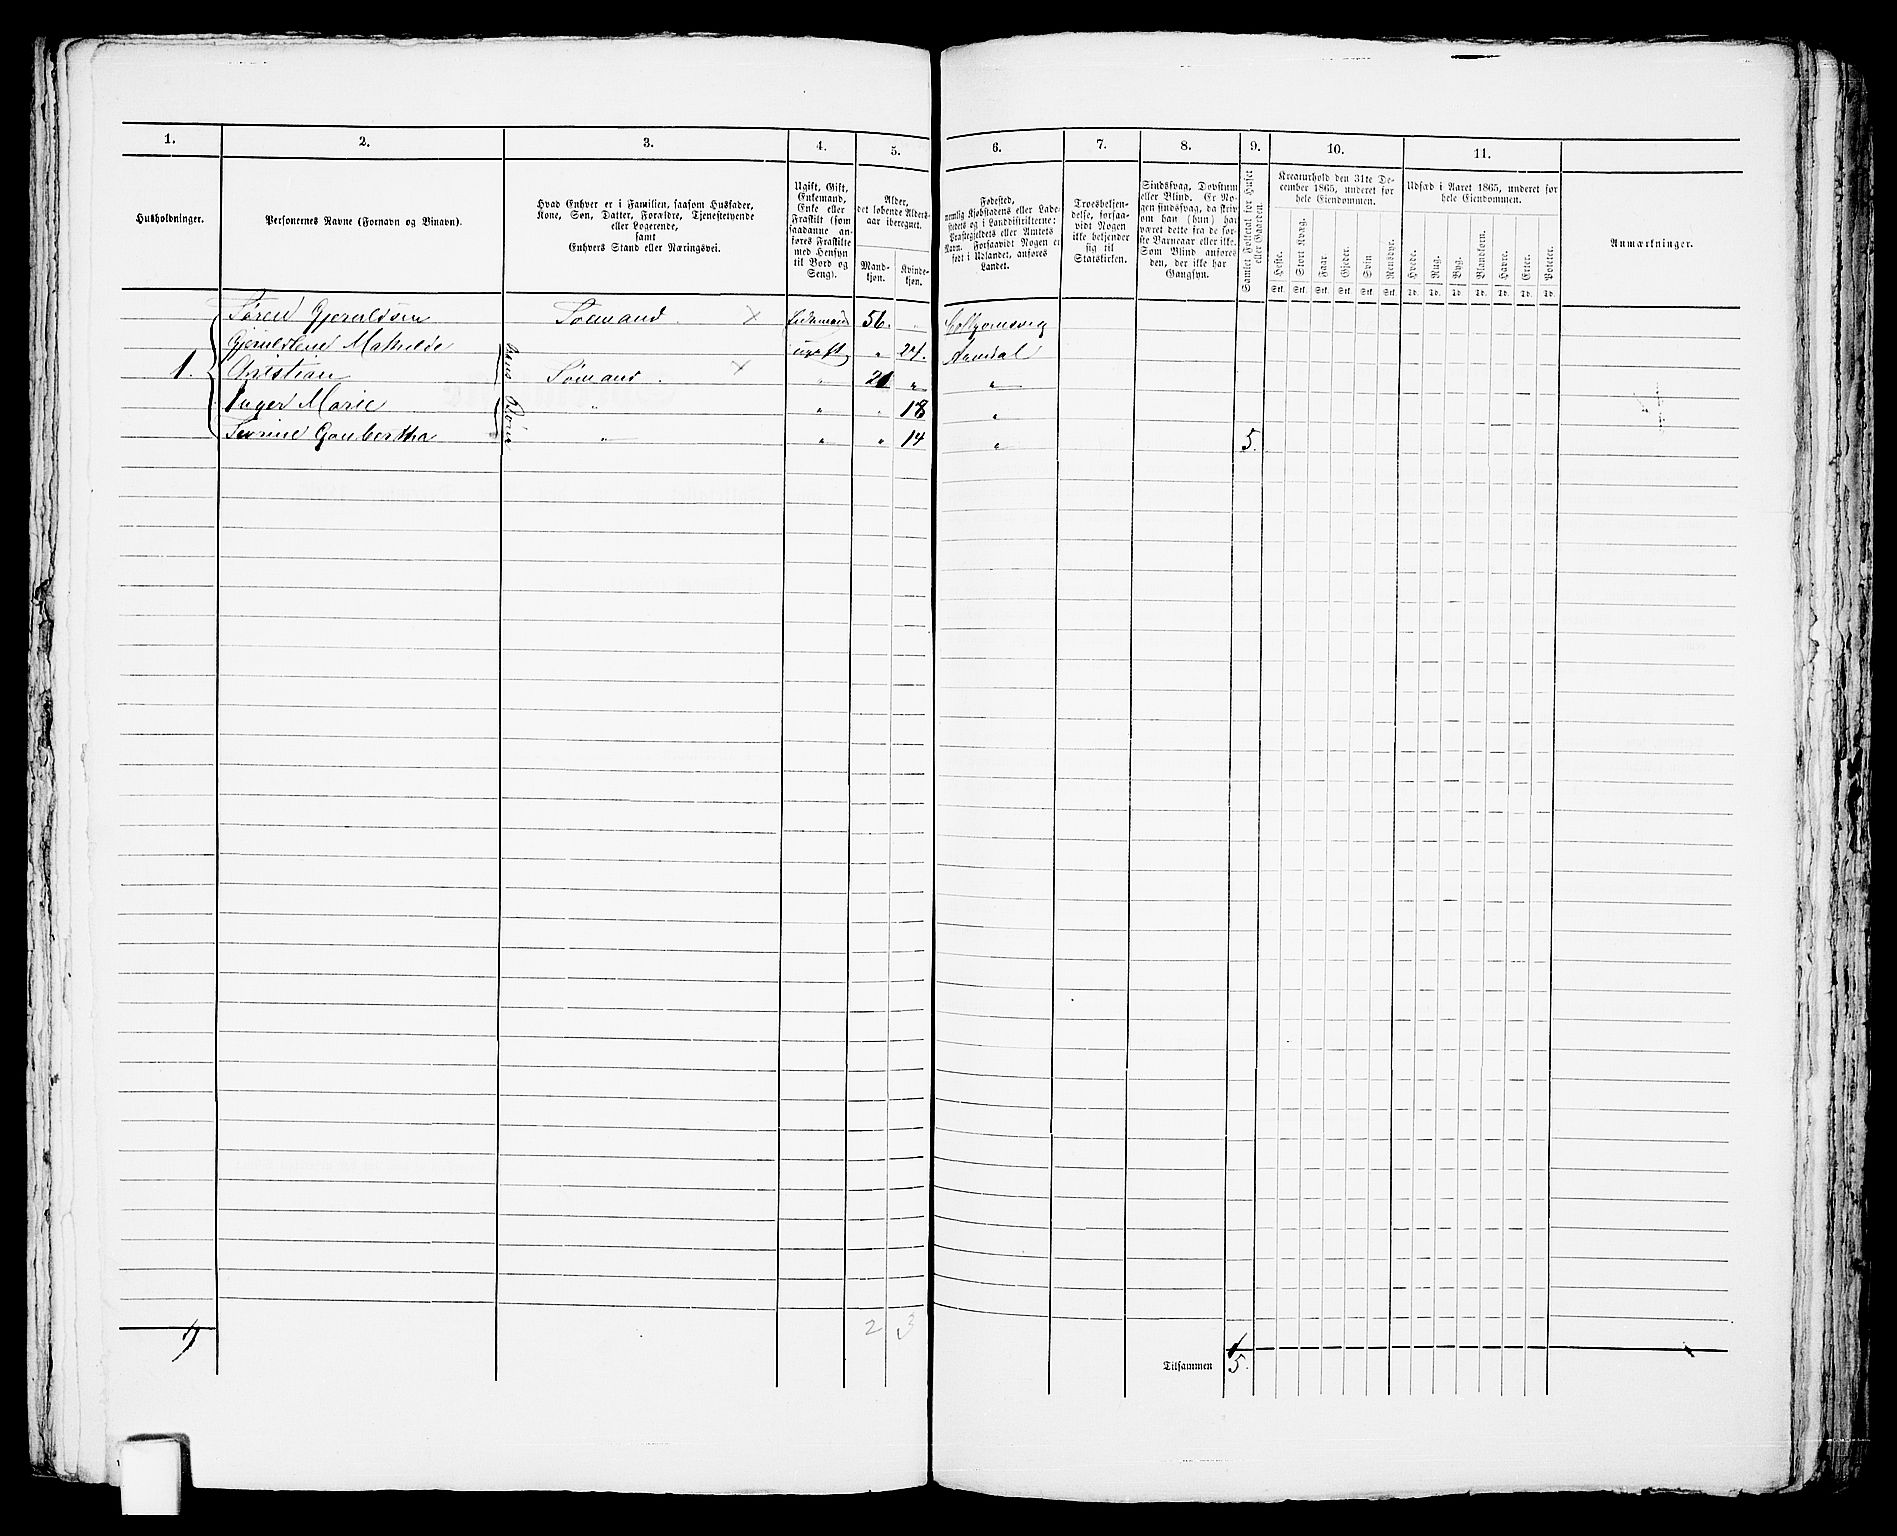 1. 2. 3. 4. 5. 6. 7. 8. 9. 10. 11.
Husholdninger.
Personernes Navne (Fornavn og Binavn).
Hvad Enhver er i Familien, saasom Husfader,
Kone, Søn, Datter, Forældre, Tjenestetyende
eller Logerende,
samt
Enhvers Stand eller Næringsvei.
Ugift, Gift,
Enkemand,
Enke eller
Fraskilt (som
saadanne an-
føres Fraskilte
med Hensyn
til Bord og
Seng).
Alder,
det løbende Alders-
aar iberegnet.
Mand-
kjøn.
Kvinde-
kjøn.
Fødested,
nemlig Kjøbstadens eller Lade-
stedets og i Landdistrikterne:
Præstegjeldets eller Amtets
Navn. Forsaavidt Nogen er
født i Udlandet, anføres
Landet.
Troesbekjen-
delse, forsaa-
vidt Nogen
ikke bekjender
sig til
Statskirken.
Sindssvag, Døvstum
eller Blind. Er No-
gen sindssvag, da skriv
om han (hun) har
været dette fra de før-
ste Barneaar eller ikke.
Som Blind anføres
den, der ikke har
Gangsyn.
Samlet Folketal for Huset
eller Gaarden.
Kreaturhold den 31te De-
cember 1865, underet for
hele Eiendommen.
Heste. Stort Kvæg. Faar Gjeder. Svin Rensdyr.
Stk. Stk. Stk. Stk. Stk. Stk.
Udsæd i Aaret 1865, underet for
hele Eiendommen.
Hvede. Rug. Byg. Blandkorn. Havre. Erter. Poteter.
Td. Td. Td. Td. Td. Td. Td.
Anmærkninger.
Søren Gjeruldsen Sømand. × Enkemand 56. "
Gjeruldene Mathilde ugift " 27. Arendal
1. Christian Sømand. × " 21 " "
Inger Marie " " " 18 "
Sevrine Gunbertha " " " 14 " 5.
hans Børn
2 3
Tilsammen 5.